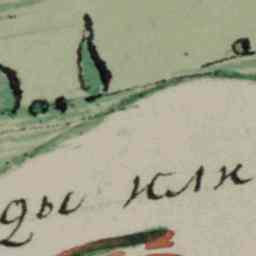 ды или